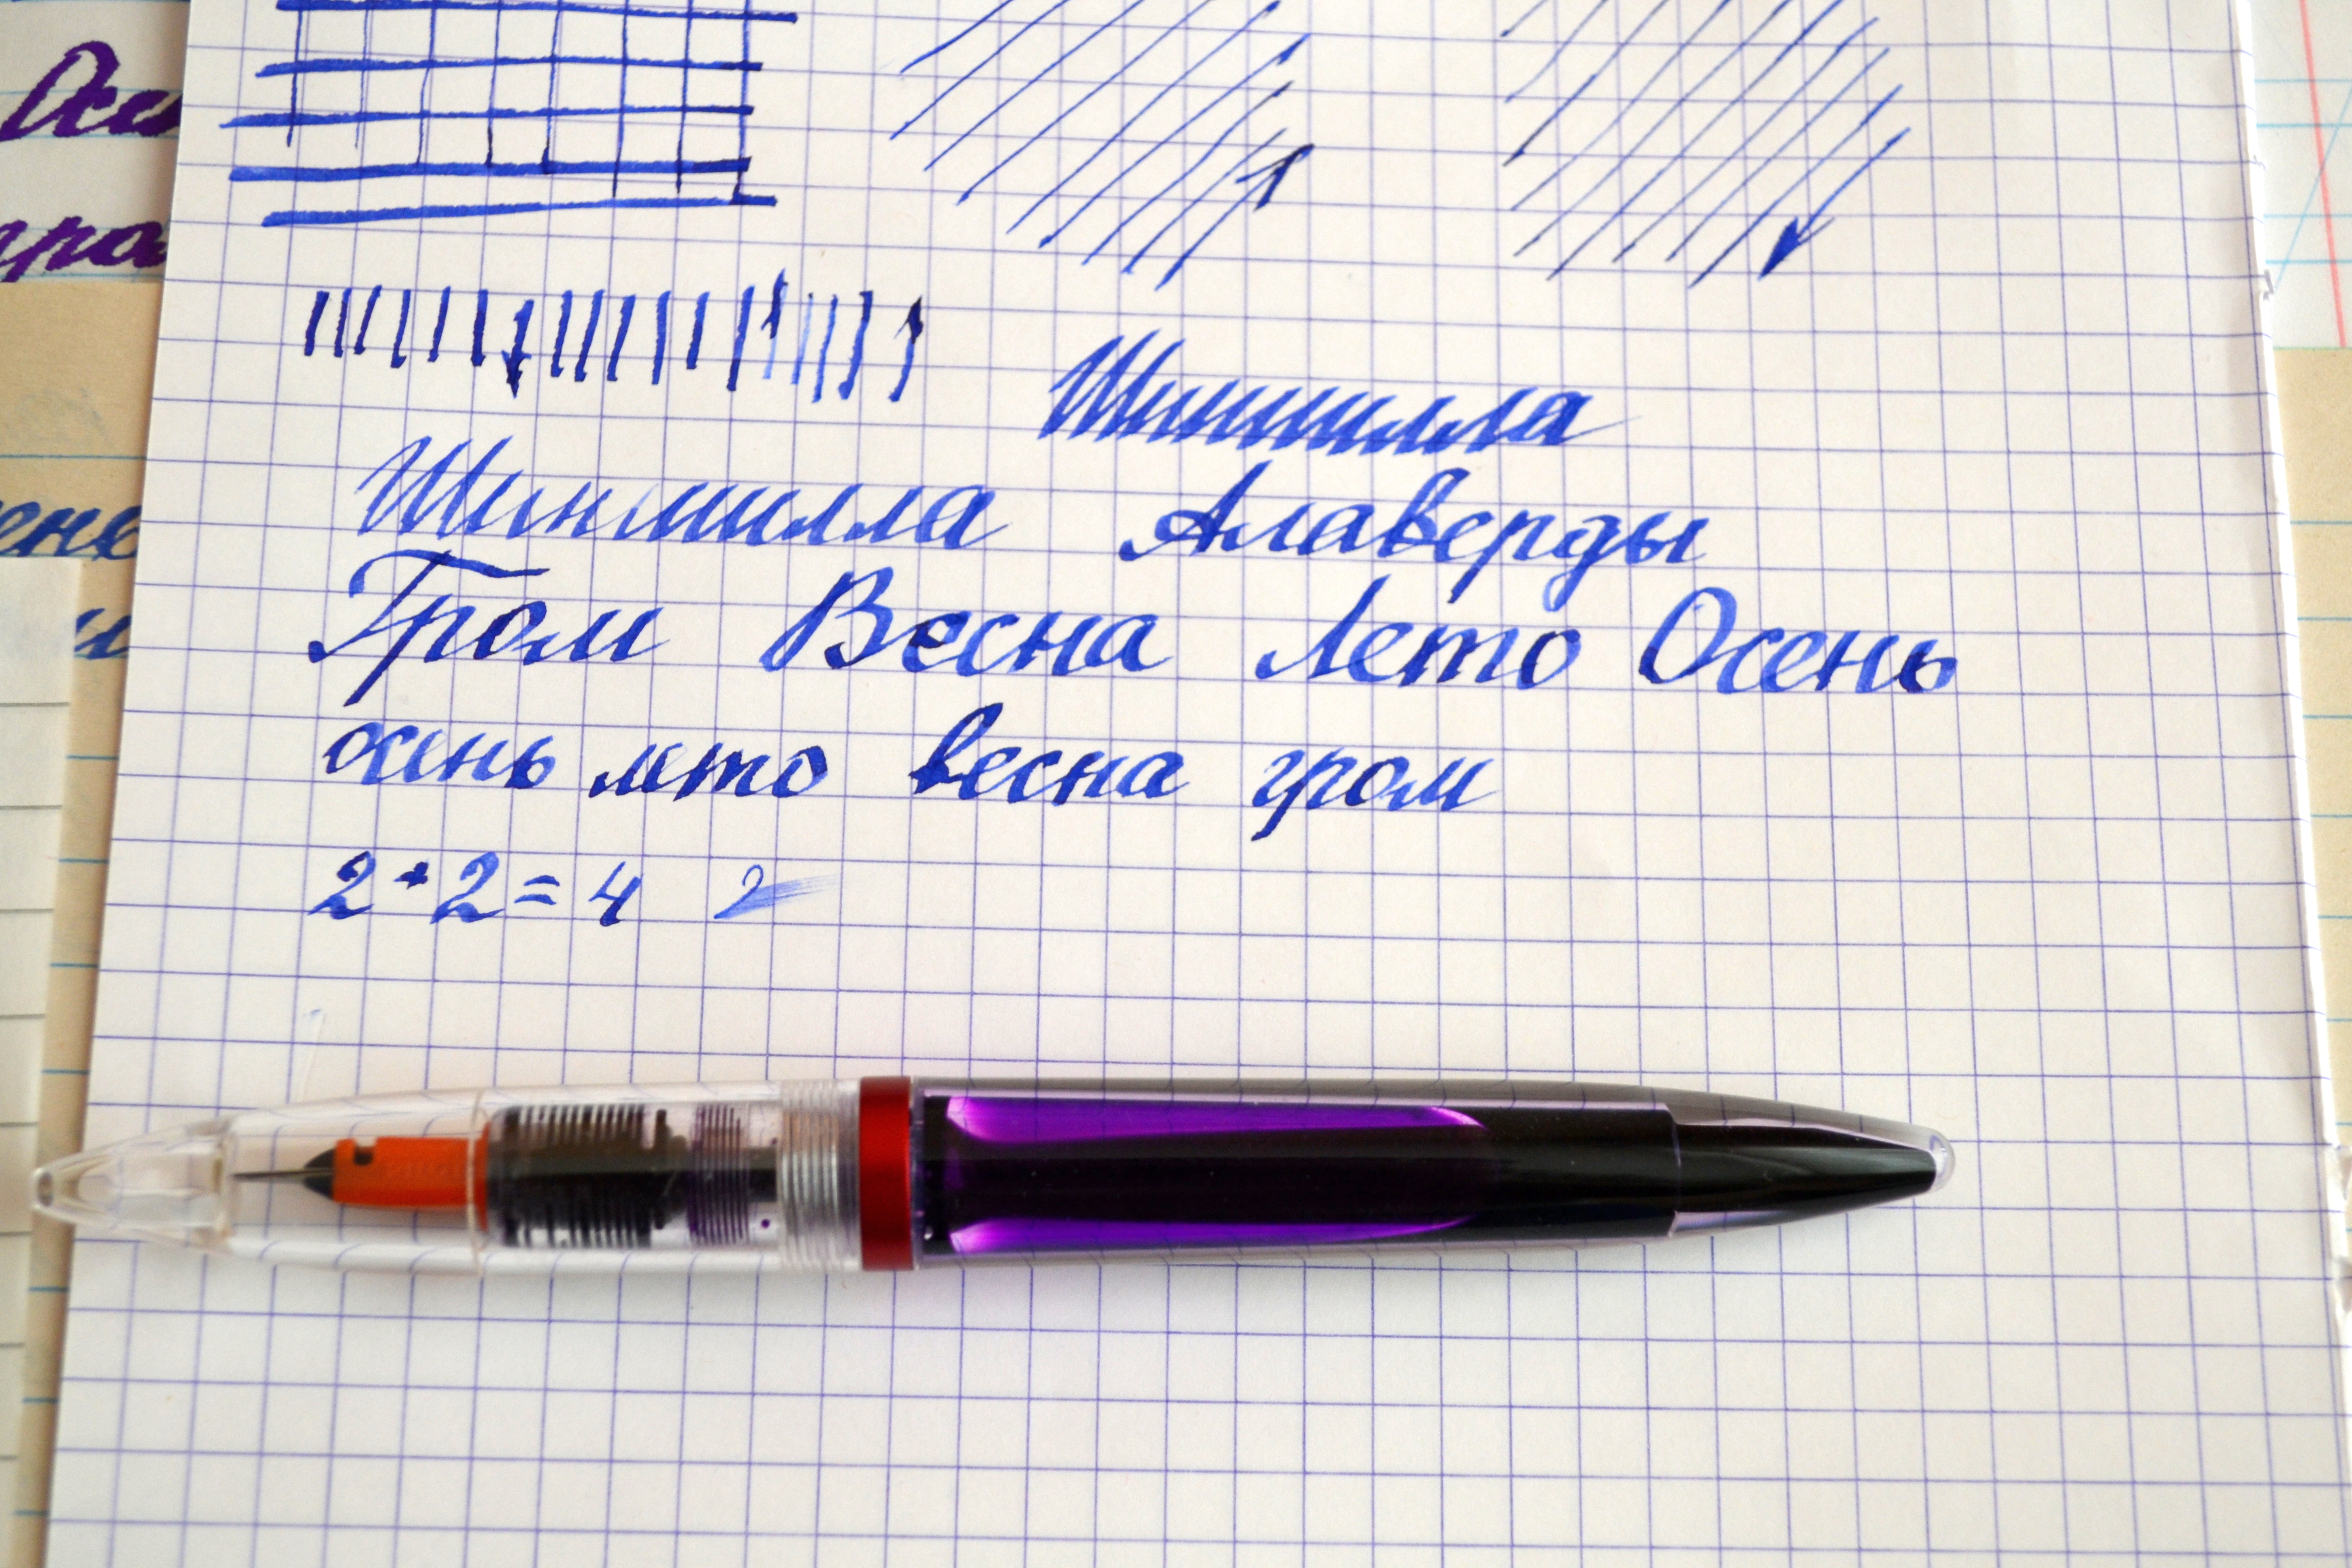 Шиншилла
Шиншилла Алаверды
Гром Весна Лето Осень
осень лето весна гром
2+2=4 2